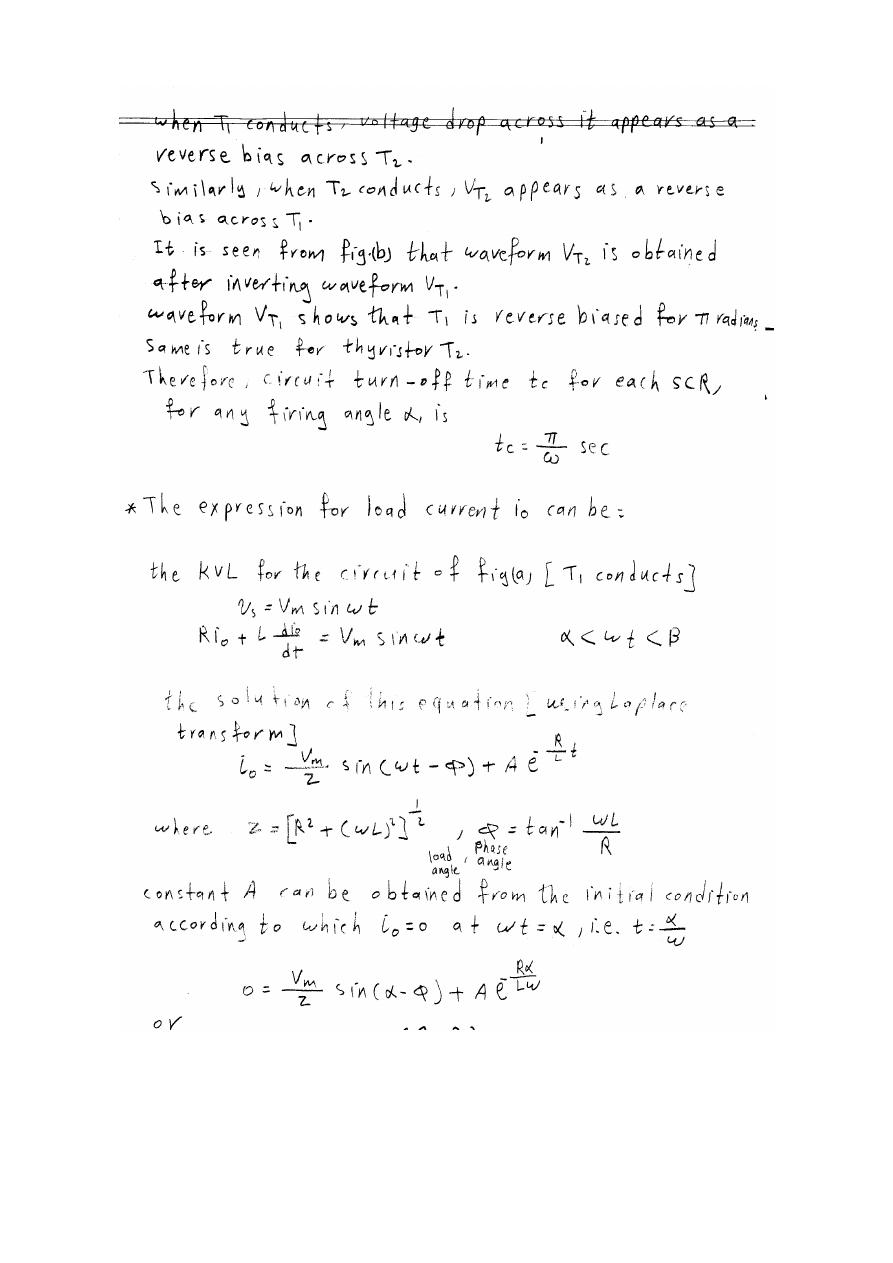 when T1 conducts, voltage drop across it appears as a
reverse bias across T2.
Similarly, when T2 conducts, VT2 appears as a reverse
bias across T1.
It is seen from fig.(b) that waveform VT2 is obtained
after inverting waveform VT1.
waveform VT1 shows that T1 is reverse biased for π radians_
Same is true for thyristor T2.
Therefore, circuit turn-off time tc for each SCR,
for any firing angle α, is
tc = π/ω sec
* The expression for load current io can be:
the KVL for the circuit of fig(a) [T1 conducts]
vs = Vm sin ωt
Rio + L dio/dt = Vm sin ωt α < ωt < β
the solution of this equation [using Laplace
transform]
io = Vm/Z sin(ωt - φ) + A e^(-R/L t)
where Z = [R² + (ωL)²]^(1/2) , φ = tan⁻¹ ωL/R
load angle, phase angle
constant A can be obtained from the initial condition
according to which io=0 at ωt = α, i.e. t = α/ω
0 = Vm/Z sin(α - φ) + A e^(-Rα/Lω)
or